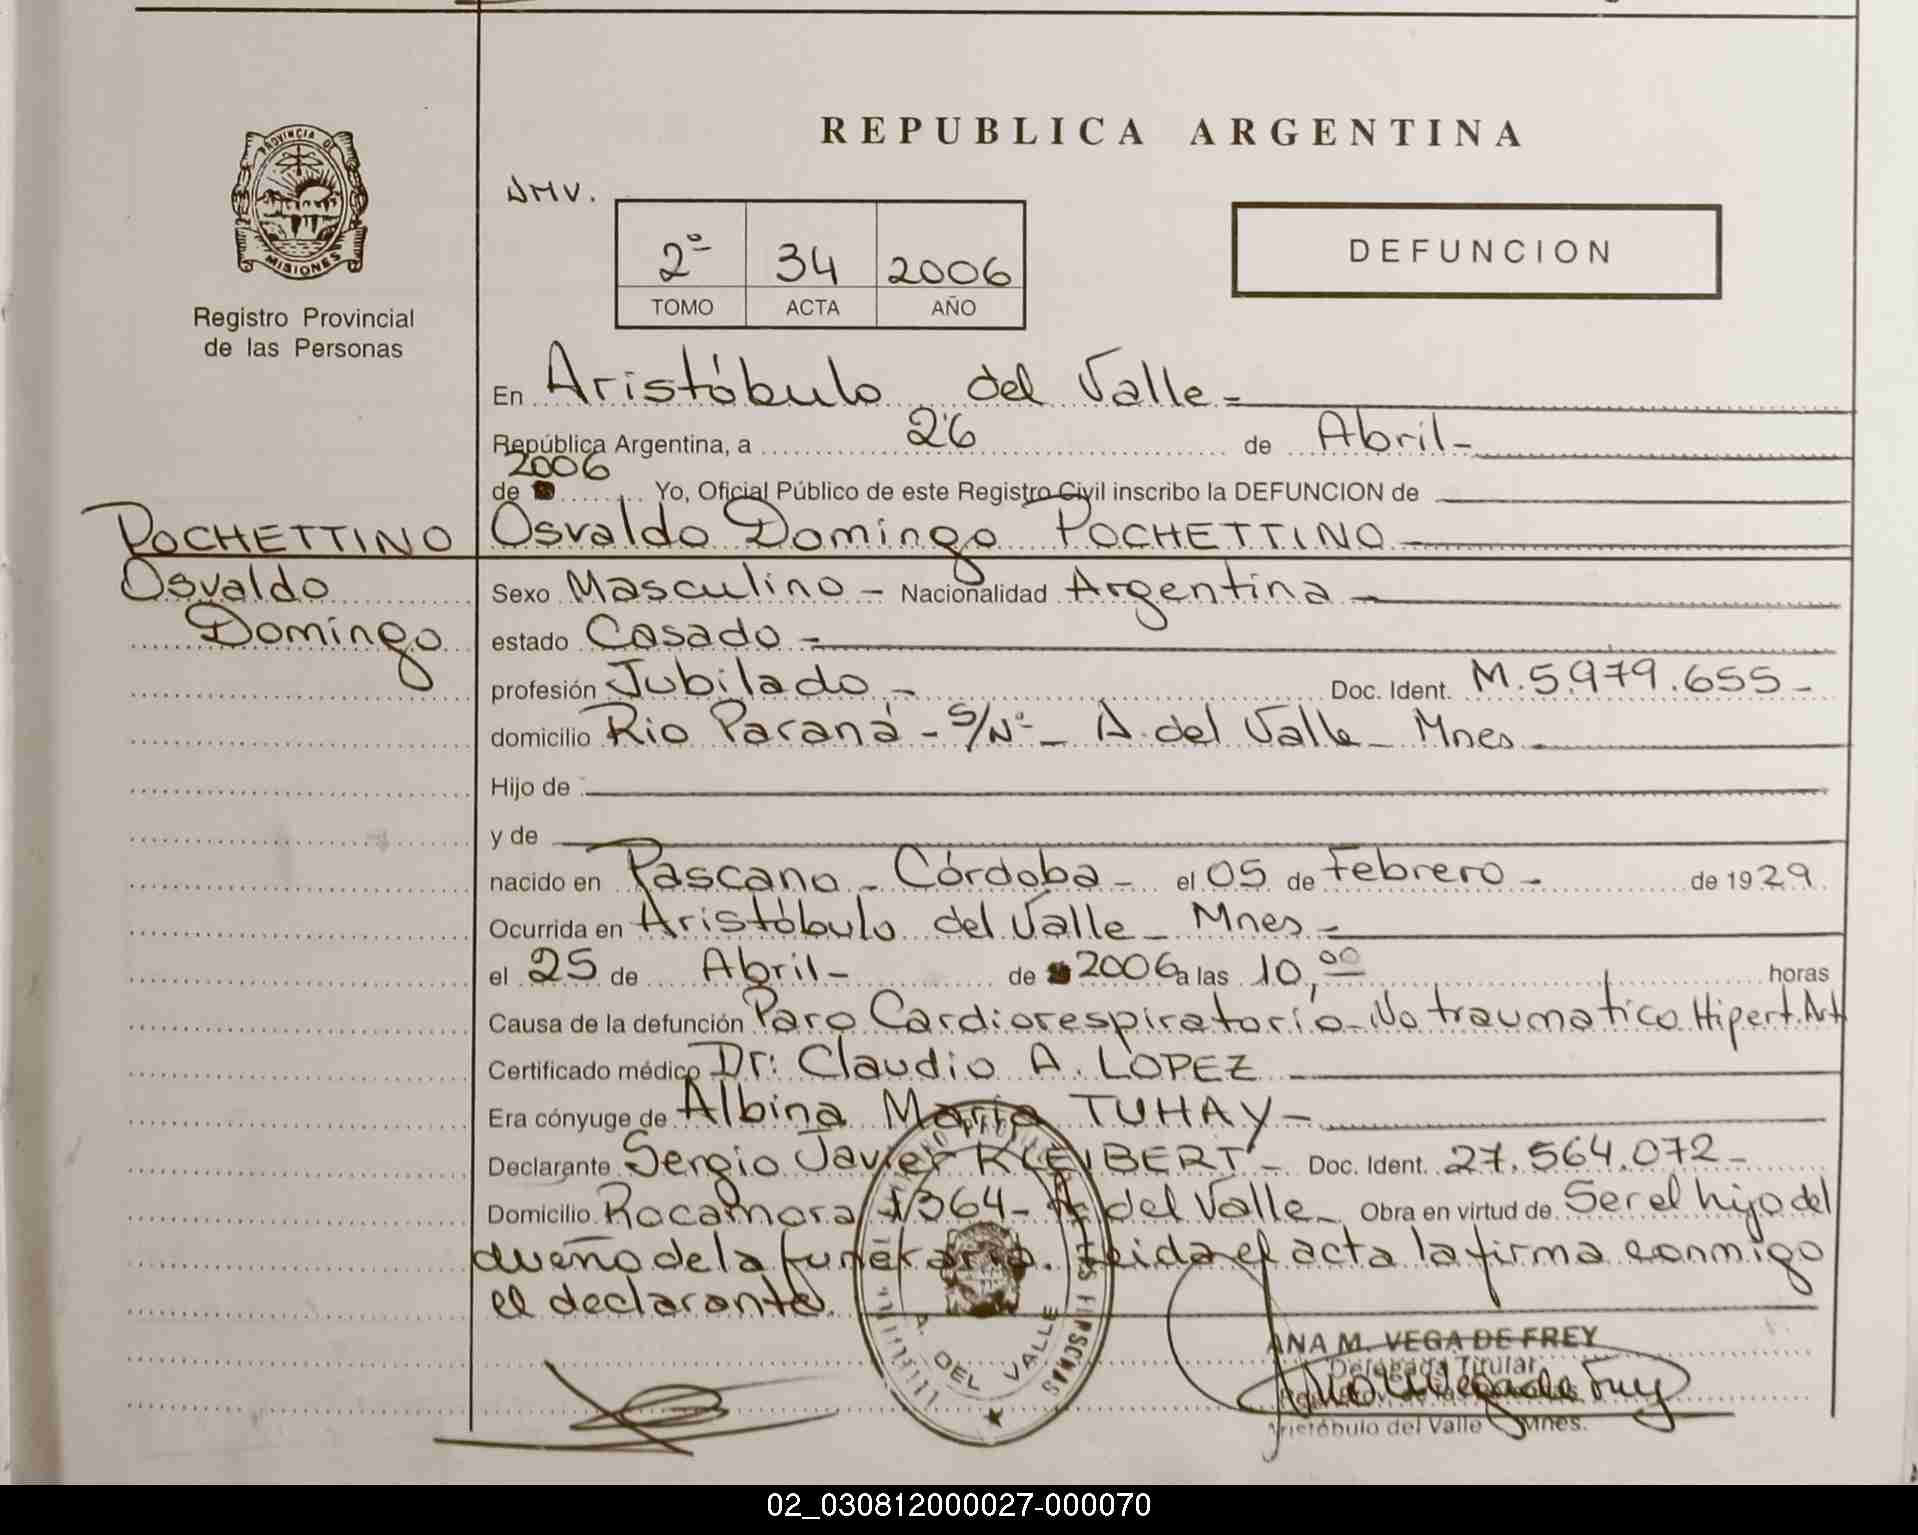 REPUBLICA ARGENTINA
PROVINCIA DE
MISIONES
Registro Provincial
de las Personas
JMV.
2º 34 2006
TOMO ACTA AÑO
DEFUNCION
En Aristóbulo del Valle-
República Argentina, a 26 de Abril-
de 2006 Yo, Oficial Público de este Registro Civil inscribo la DEFUNCION de
POCHETTINO
Osvaldo
Domingo
Osvaldo Domingo POCHETTINO
Sexo Masculino - Nacionalidad Argentina
estado Casado -
profesión Jubilado - Doc. Ident. M.5.979.655-
domicilio Rio Paraná - S/Nº - A. del Valle - Mnes
Hijo de
y de
nacido en Pascano - Córdoba - el 05 de Febrero - de 1929.
Ocurrida en Aristóbulo del Valle - Mnes -
el 25 de Abril - de 2006 a las 10,00 horas
Causa de la defunción Paro Cardiorespiratorio - No traumatico Hipert. Art
Certificado médico Dr: Claudio A. LOPEZ
Era cónyuge de Albina María TUHAY -
Declarante Sergio Javier KLEIBERT - Doc. Ident. 27.564.072-
Domicilio Rocamora 1364- A del Valle - Obra en virtud de Ser el hijo del
dueño de la funeraria. Leida el acta la firma conmigo
el declarante.
A. DEL VALLE
ANA M. VEGA DE FREY
Delegada Titular
Aristóbulo del Valle Mnes.
02_030812000027-000070